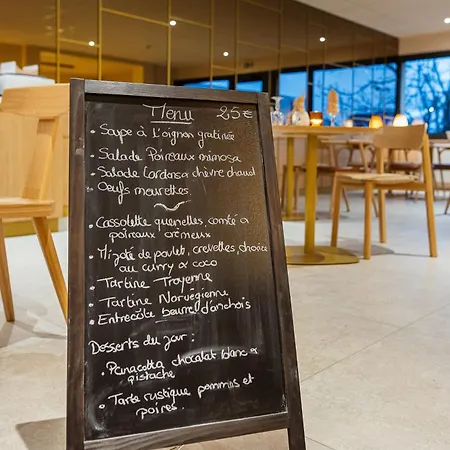 Menu 25€
• Soupe à L'oignon gratinée
• Salade Poireaux mimosa
• Salade Lardons chèvre chaud
• Oeufs meurettes.
• Cassolette quenelles comté et
poireaux crémeux
• Mijoté de poulet, crevettes, chorizo
au curry & coco
• Tartine Troyenne
• Tartine Norvégienne
• Entrecôte beurre d'anchois
Desserts du jour :
• Panacotta chocolat blanc et
pistache
• Tarte rustique pommes et
poires.